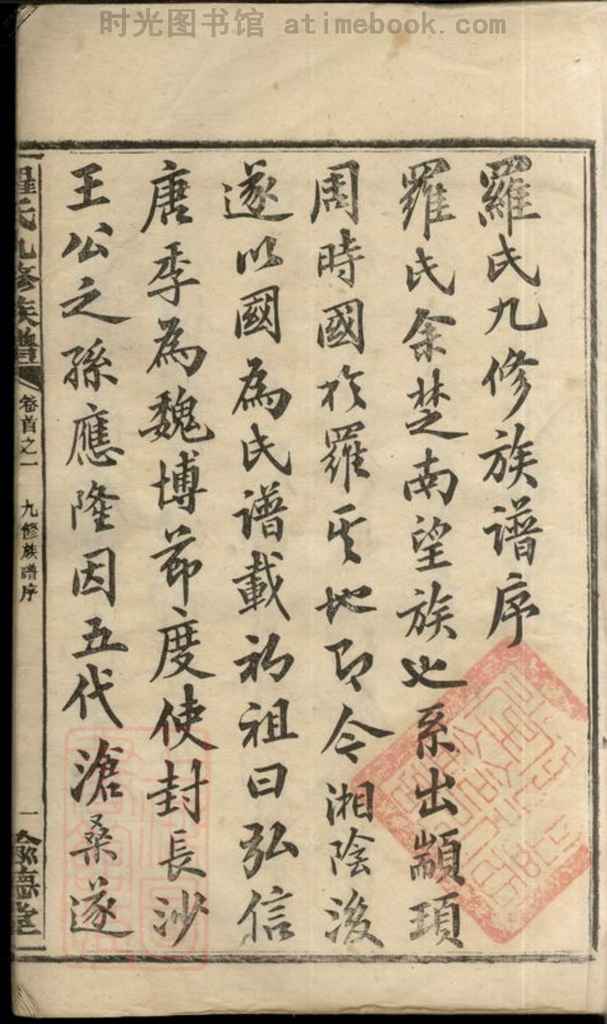 时光图书馆 atimebook.com
羅氏九修族谱序
羅氏余楚南望族也系出顓頊
周時國於羅其地即今湘陰後
遂以國為氏譜載初祖曰弘信
唐季為魏博節度使封長沙
王公之孫應隆因五代滄桑遂
羅氏九修族譜
卷首之一
九修族譜序
一